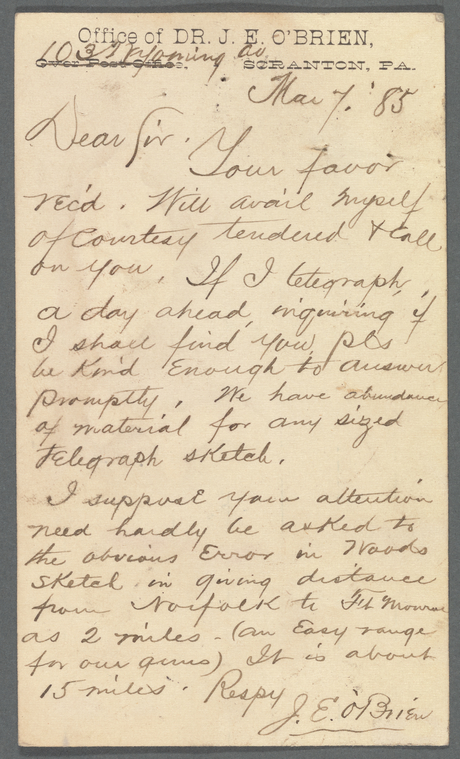 Office of DR. J. E. O'BRIEN,
103 Wyoming Av
Over Post Office. SCRANTON, PA.
Mar 7. '85
Dear Sir. Your favor
rec'd. Will avail myself
of Courtesy tendered & call
on you. If I telegraph,
a day ahead, inquiring if
I shall find you, pls
be kind Enough to answer
promptly. We have abundance
of material for any sized
telegraph sketch.
I suppose your attention
need hardly be asked to
the obvious Error in Woods
sketch in giving distance
from Norfolk to Ft Monroe
as 2 miles - (an Easy range
for our guns) It is about
15 miles. Respy
J. E. O'Brien